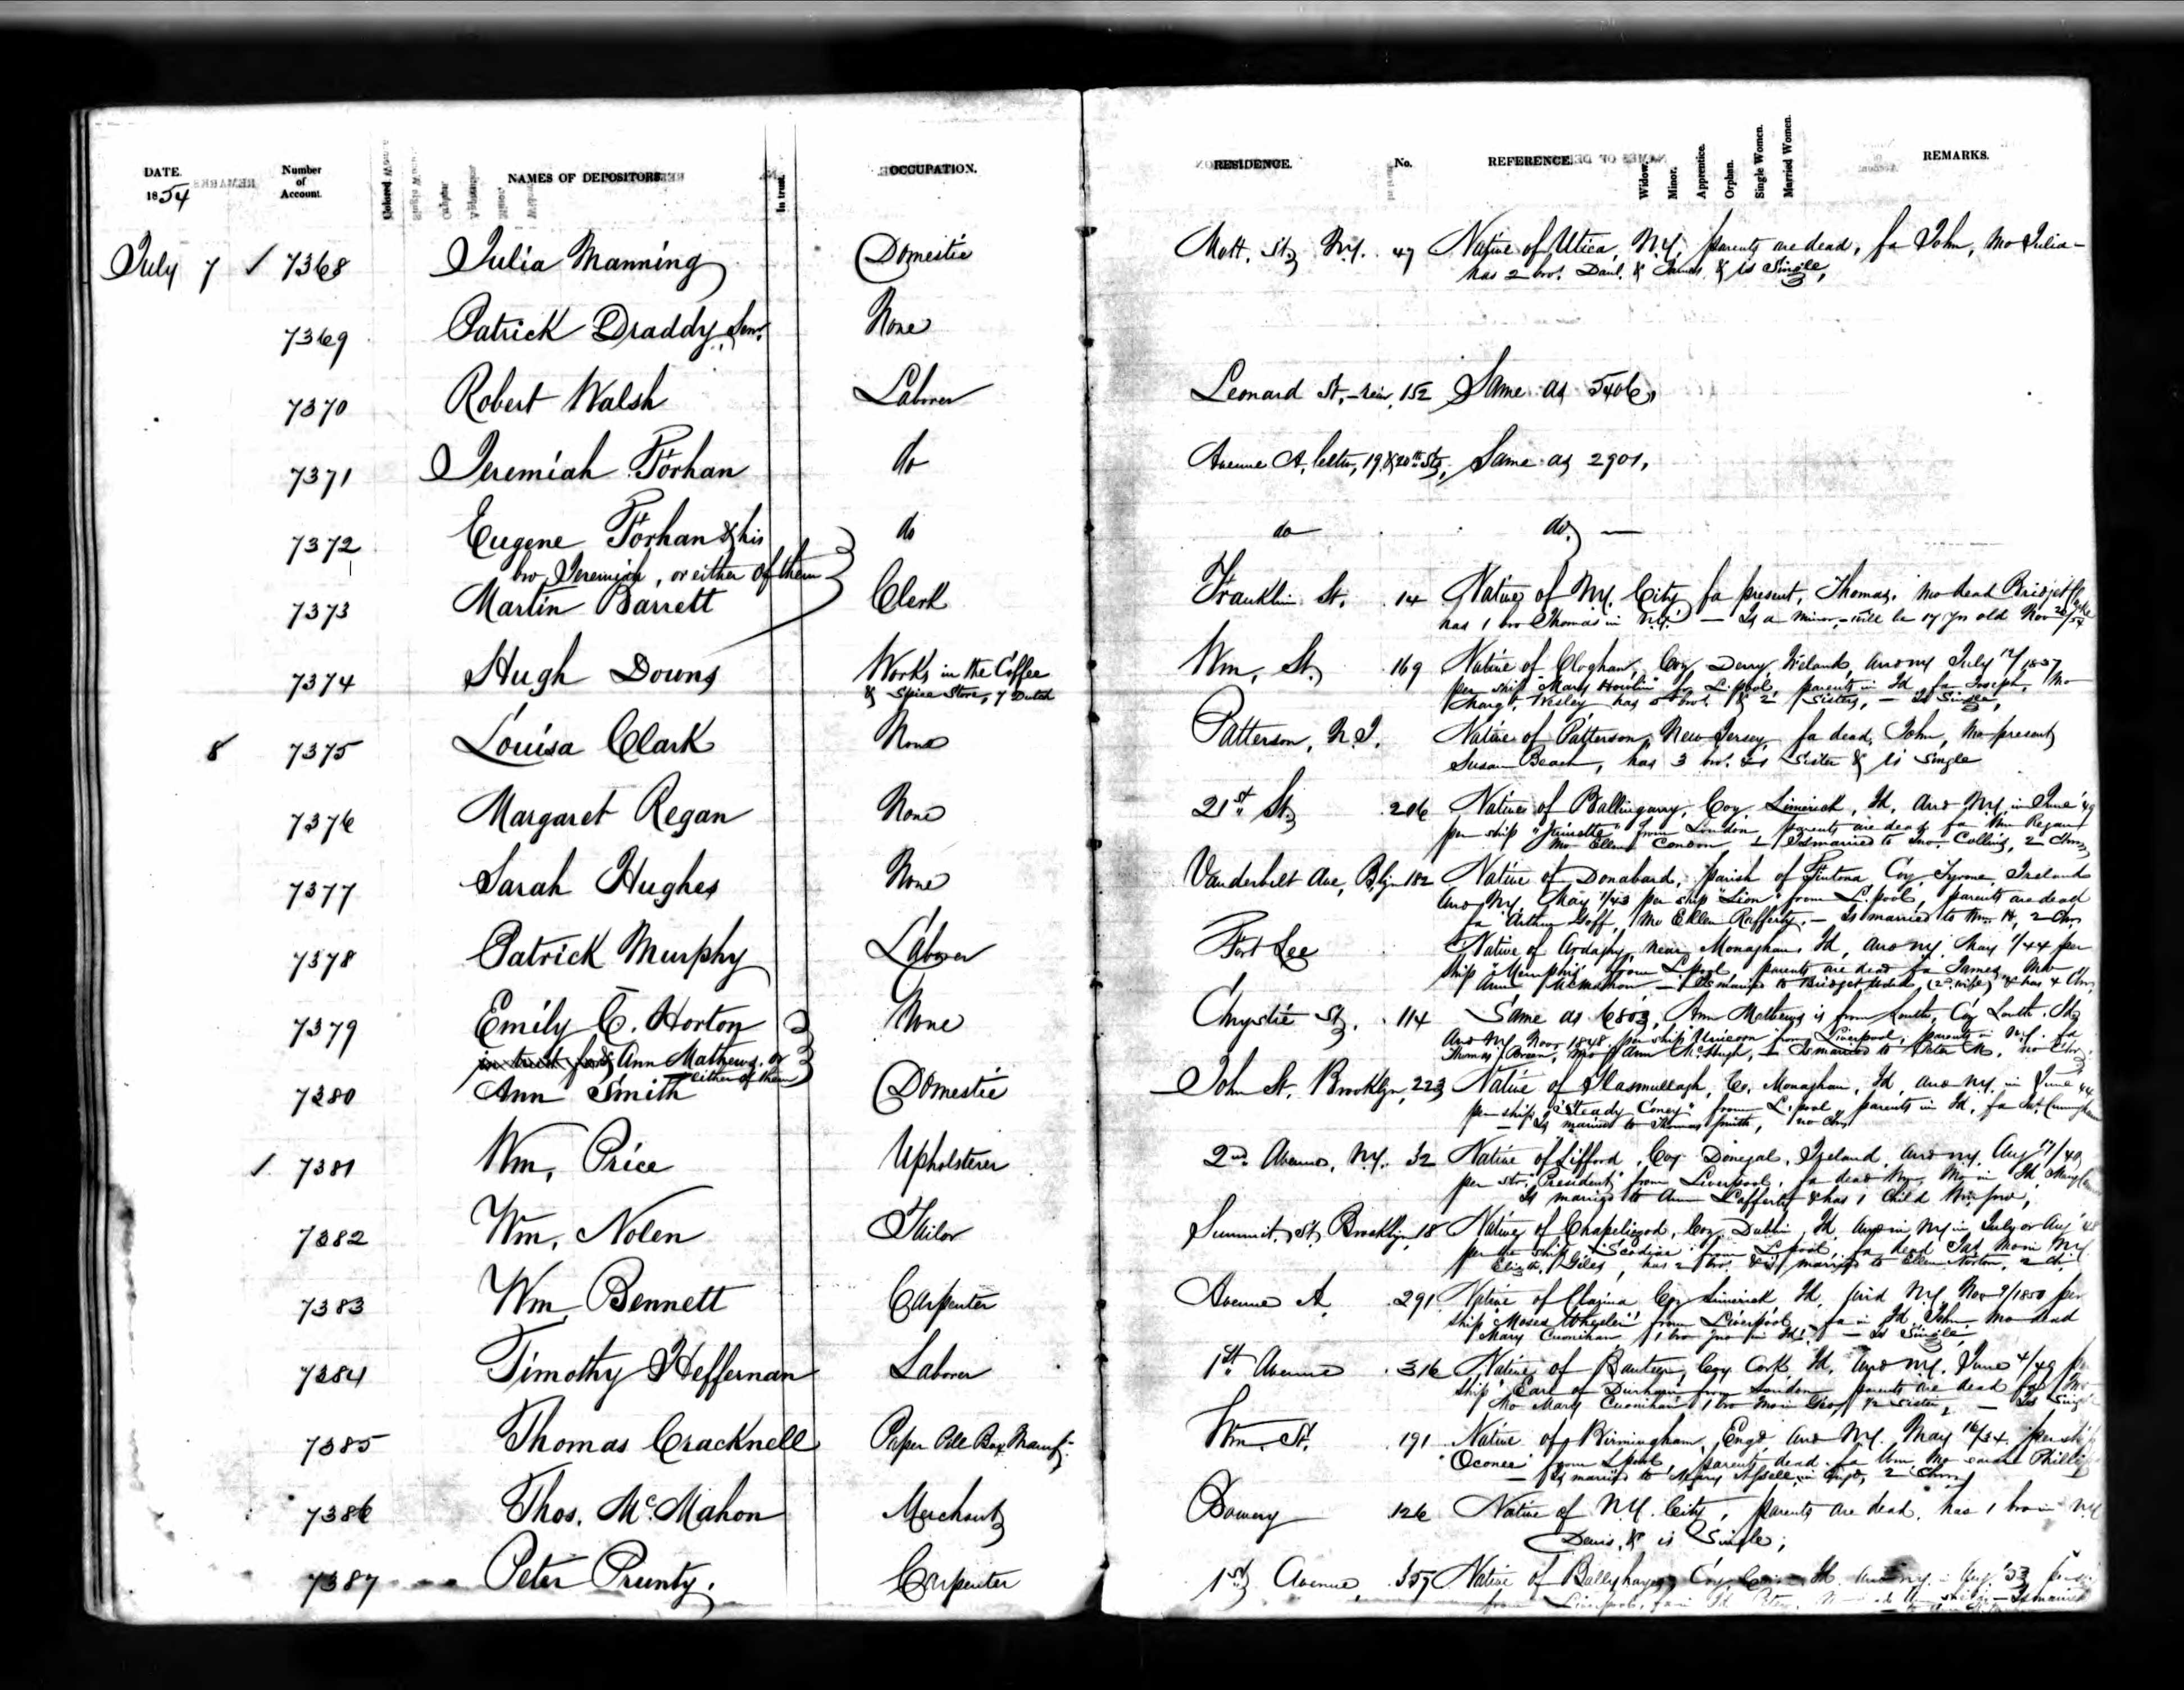 DATE.
1854
Number
of
Account.
Colored
NAMES OF DEPOSITORS.
In trust.
OCCUPATION.
RESIDENCE.
No.
REFERENCE.
Widow.
Minor.
Apprentice.
Orphan.
Single Women.
Married Women.
REMARKS.
July 7 ✓ 7368 Julia Manning Domestic Mott. St. N.Y. 47 Native of Utica, N.Y. parents are dead, fa John, Mo Julia -
has 2 bro. Danl. & James, & is Single,
7369 Patrick Draddy, Senr. None
7370 Robert Walsh Laborer Leonard St. - rear, 152 Same as 5406,
7371 Jeremiah Forhan do Avenue A, betw, 19 & 20th Sts, Same as 2901,
7372 Eugene Forhan & his do do do. —
bro Jeremiah, or either of them
7373 Martin Barrett Clerk Franklin St. 14 Native of N.Y. City fa present, Thomas. Mo dead Bridget
has 1 bro Thomas in N.Y. — Is a minor, - will be 17 yrs old Nov
7374 Hugh Downs Works in the Coffee Wm, St. 169 Native of Cloghan, Coy Derry, Ireland, arr NY July
& Spice Store, 7 Dutch per ship Mary from L.pool, parents in Id, fa Joseph, Mo
Margt. has 5 bro. & 2 Sisters, — Is Single,
8 7375 Louisa Clark None Patterson, N.J. Native of Patterson, New Jersey, fa dead, John, Mo present
Susan Beach, has 3 bro. & 1 Sister & is Single
7376 Margaret Regan None 21st St. 206 Native of Ballingarry, Coy Limerick, Id, arr N.Y. in June '49
per ship from London, parents are dead, fa Wm Regan
Mo Ellen Condon — Is married to Jno. Collins, 2 Chn,
7377 Sarah Hughes None Vanderbelt Ave, Bklyn 182 Native of Donabard, Parish of Fintona Coy Tyrone, Ireland
arr N.Y. May 1/43 per ship "Lion" from L.pool, parents are dead
fa Arthur Goff, Mo Ellen Rafferty. — Is married to Wm. H, 2 Chn,
7378 Patrick Murphy Laborer Fort Lee Native of near Monaghan, Id, arr NY May 1/44 per
ship "Memphis" from L.pool, parents are dead fa James, Mo
Ann McMahon — Is married to Bridget (2d wife) & has 4 Chn,
7379 Emily C. Horton None Chrystie St. 114 Same as 6803, Ann Mathews is from Louth, Coy Louth, Id,
in trust for & Ann Mathews, or arr NY Nov 1848 per ship Unicorn from Liverpool, parents in N.Y. fa
either of them Thomas Breen, Mo Ann McHugh, — Is married to Peter M. no Chn,
7380 Ann Smith Domestic John St. Brooklyn, 223 Native of Co. Monaghan, Id, arr N.Y. in June '44
per ship from L.pool, parents in Id, fa
— Is married to Thomas Smith, no Chn
✓ 7381 Wm, Price Upholsterer 2nd Avenue, N.Y. 32 Native of Lifford, Coy Donegal, Ireland, arr NY. Aug 17/40,
per str. President from Liverpool, fa dead Wm, Mo in Id, Mary
Is married to Ann Lafferty & has 1 Child
7382 Wm, Nolen Tailor Summit, St, Brooklyn, 18 Native of Chapelizod, Coy Dublin, Id, arr in NY in July or Aug '48
per ship from L.pool, fa dead Jas, Mo in N.Y.
Elizth, Giles, has 2 bro. & is married to Ellen Norton, 2 Ch.
7383 Wm Bennett Carpenter Avenue A 291 Native of Coy Limerick Id, arrd NY. Nov 9/1850 per
ship "Moses Wheeler" from Liverpool — fa in Id, John, Mo dead
Mary 1 bro Jno in Id. — Is Single,
7384 Timothy Heffernan Laborer 1st Avenue 316 Native of Banteer, Coy Cork, Id, arr N.Y. June 4/49 per
ship "Earl of Durham" from London, parents are dead
Mo Mary 1 bro & 2 Sisters, — Is Single
7385 Thomas Cracknell Paper Pill Box Manufr. Wm. St. 191 Native of Birmingham, Engd, arr N.Y. May 16/34 per ship
"Oconee" from L.pool, parents dead, fa Wm, Mo Sarah Phillips
— Is married to Mary in Engd, 2 Chn
7386 Thos. McMahon Merchant Bowery 126 Native of N.Y. City, parents are dead, has 1 bro in N.Y
Denis, & is Single;
7387 Peter Prunty. Carpenter 1st Avenue, 357 Native of Coy Id. arr NY. Aug '53
from Liverpool, fa in Id Peter, — Is married